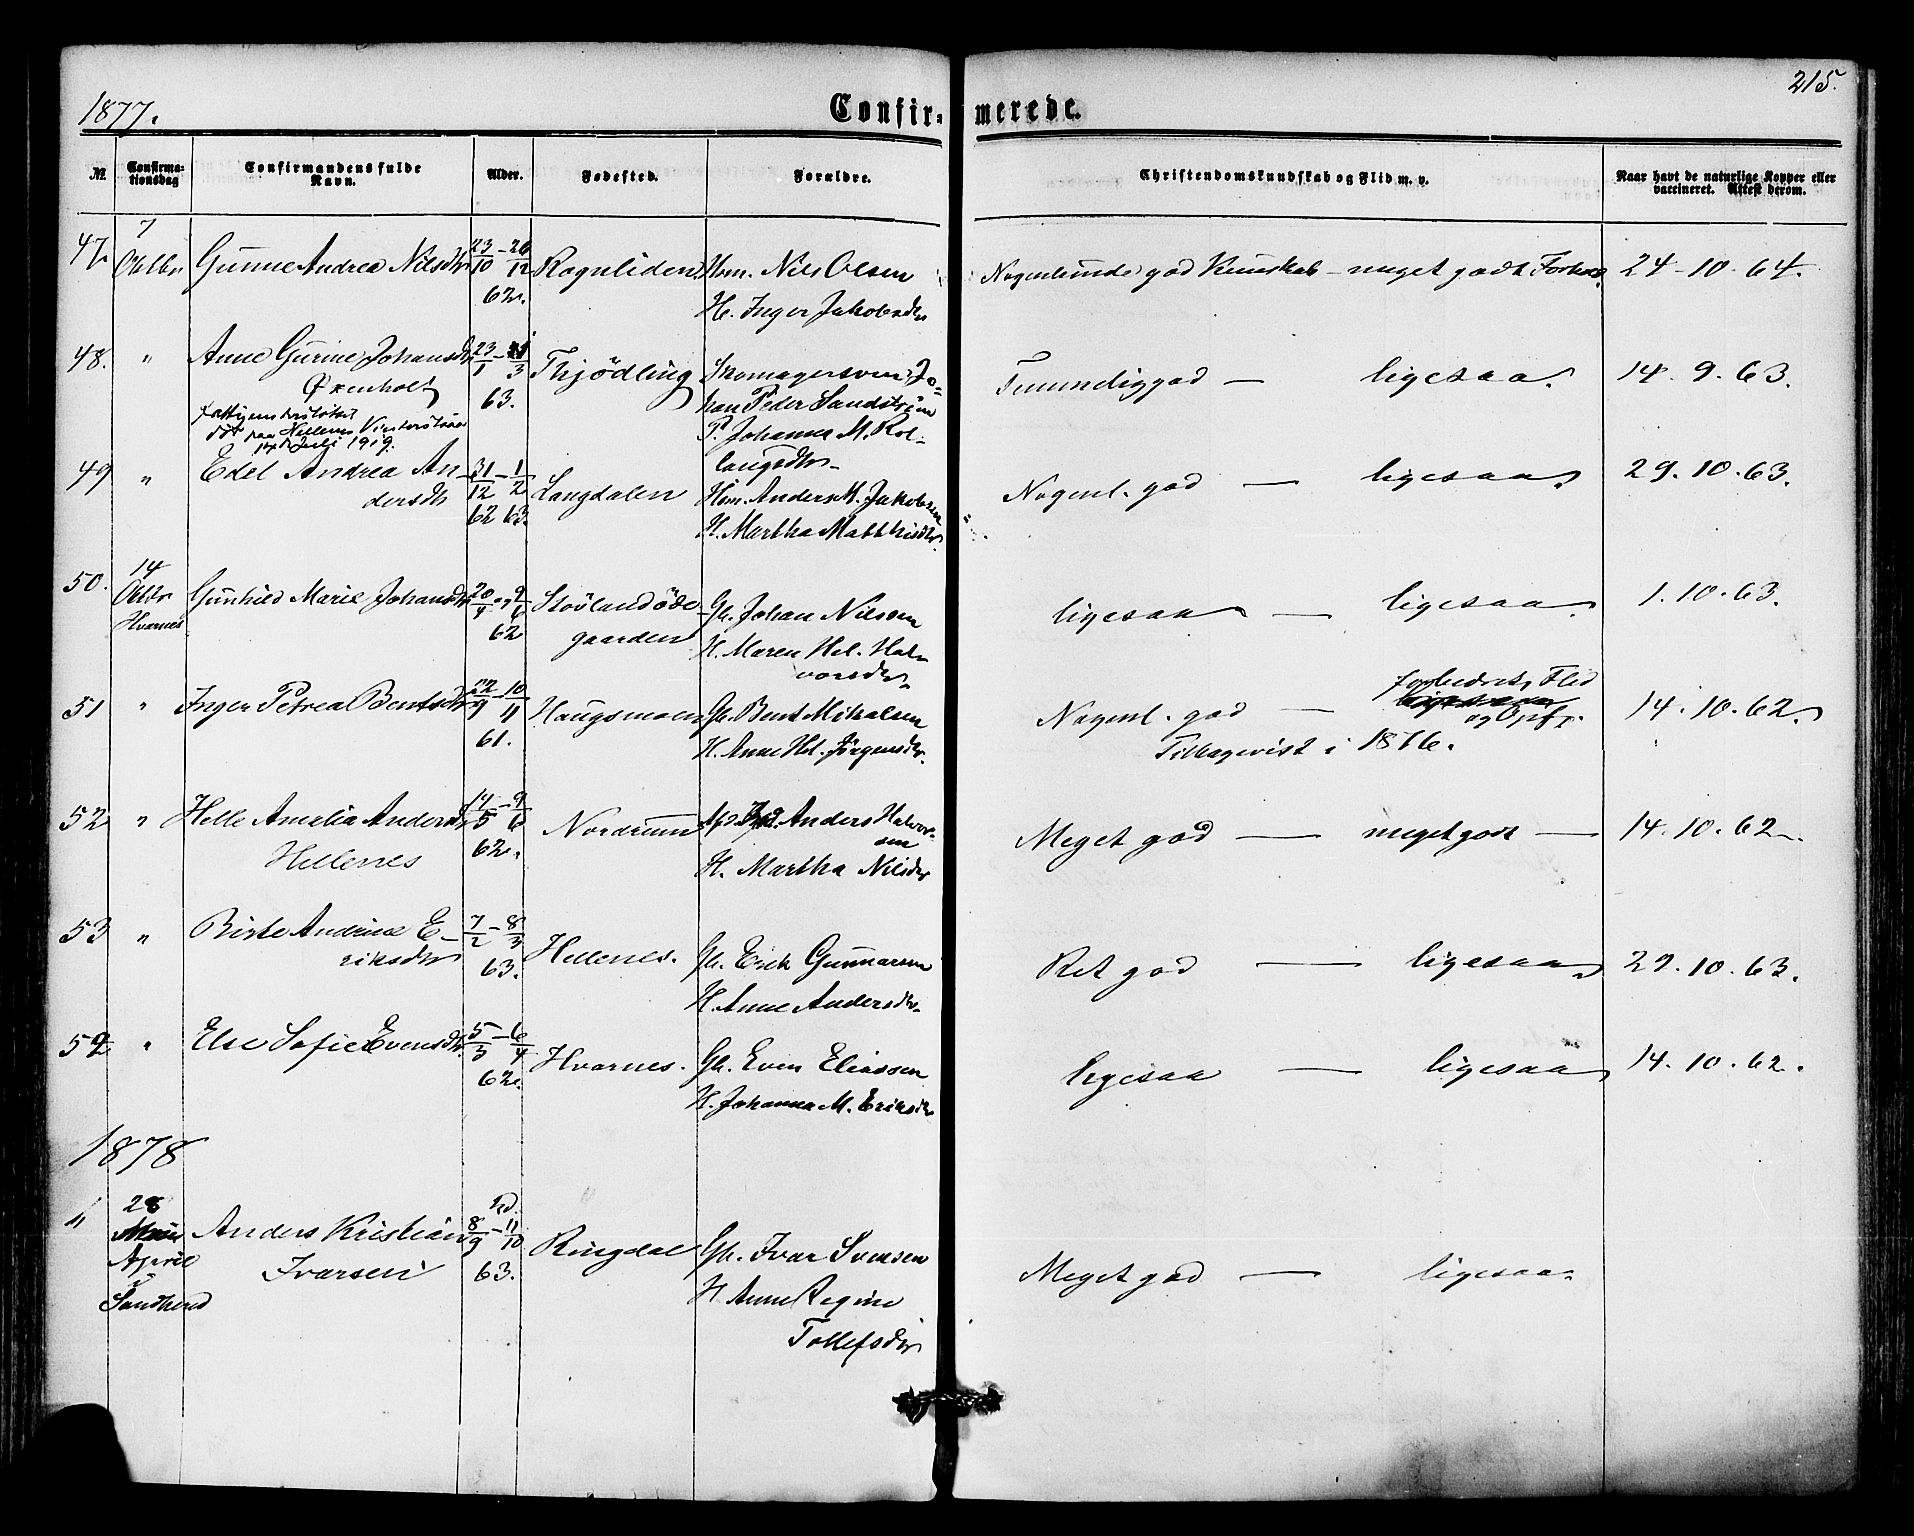 1877.
Confir- merede.
215.
No.
Confirma-
tionsdag
Confirmandens fulde
Navn.
Alder.
Fødested.
Forældre.
Christendomskundskab og Flid m. v.
Naar havt de naturlige Kopper eller
vaccineret. Attest derom.
47 7 Oktbr Gunne Andrea Nilsdtr 23/10 - 26/12 62. Rognliden Hm. Nils Olsen
H. Inger Jakobsdtr
Nogenlunde god Kunskab - meget godt Forhold. 24-10-64.
48. " Anne Gurine Johansdtr 23/1 - 3 63. Thjödling Skomagersvend Jo-
Øxenholt
han Peder Sandström
P. Johanna M. Rol-
laugsdtr
død paa Hellenes
14de Juli 1919.
Temmelig god — ligesaa. 14.9.63.
49 " Edel Andrea An-
dersdtr
31/12 62 - 1/2 63. Langdalen
Hm. Anders M. Jakobsen
H. Martha Matthisdtr
Nogenl. god — ligesaa 29.10.63.
50. 14 Oktbr Hvarnes Gunhild Marie Johansdtr 20/4 - 9/6 62 Stövlandöde-
gaarden
Gb. Johan Nilssen
H. Maren Hel. Hal-
vorsdtr
ligesaa — ligesaa 1.10.63.
51 " Inger Petrea Bentsdtr 22/9 - 10/11 61. Haugsmoen Gb. Bent Mikalsen
H. Anne Hel. Jörgensdtr.
Nogenl. god — forbedret Flid
ligesaa
og Opf.
Tilbagevist i 1876.
14.10.62.
52 " Helle Amalia Andersdtr 14/5 - 9/6 62. Nordrum Anders Halvor-
sen
Hellenes
H. Martha Nilsdtr
Meget god — meget godt — 14.10.62.
53 " Birte Andrine E-
riksdtr
7/2 - 8/3 63. Hellenes. Gb. Erik Gunnarsen
H. Anne Andersdtr
Ret god — ligesaa 29.10.63.
54 " Else Sofie Evensdtr 5/3 - 6/4 62. Hvarnes. Gb. Even Eliassen
H. Johanna M. Eriksdtr
ligesaa — ligesaa 14.10.62.
1878
1 28 April i Sandherred Anders Kristian
Ivarsen
hd. 8/9 - 11/10 63. Ringdal Gb. Ivar Svensen
H. Anne Regine
Tollefsdtr
Meget god — ligesaa